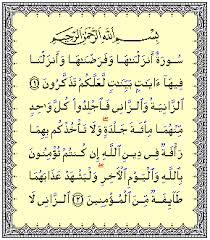 بِسْمِ ٱللَّهِ ٱلرَّحْمَٰنِ ٱلرَّحِيمِ
سُورَةٌ أَنزَلْنَٰهَا وَفَرَضْنَٰهَا وَأَنزَلْنَا
فِيهَآ ءَايَٰتٍۭ بَيِّنَٰتٍ لَّعَلَّكُمْ تَذَكَّرُونَ ١
ٱلزَّانِيَةُ وَٱلزَّانِى فَٱجْلِدُوا۟ كُلَّ وَٰحِدٍ
مِّنْهُمَا مِا۟ئَةَ جَلْدَةٍ ۖ وَلَا تَأْخُذْكُم بِهِمَا
رَأْفَةٌ فِى دِينِ ٱللَّهِ إِن كُنتُمْ تُؤْمِنُونَ
بِٱللَّهِ وَٱلْيَوْمِ ٱلْءَاخِرِ ۖ وَلْيَشْهَدْ عَذَابَهُمَا
طَآئِفَةٌ مِّنَ ٱلْمُؤْمِنِينَ ٢ ٱلزَّانِى لَا